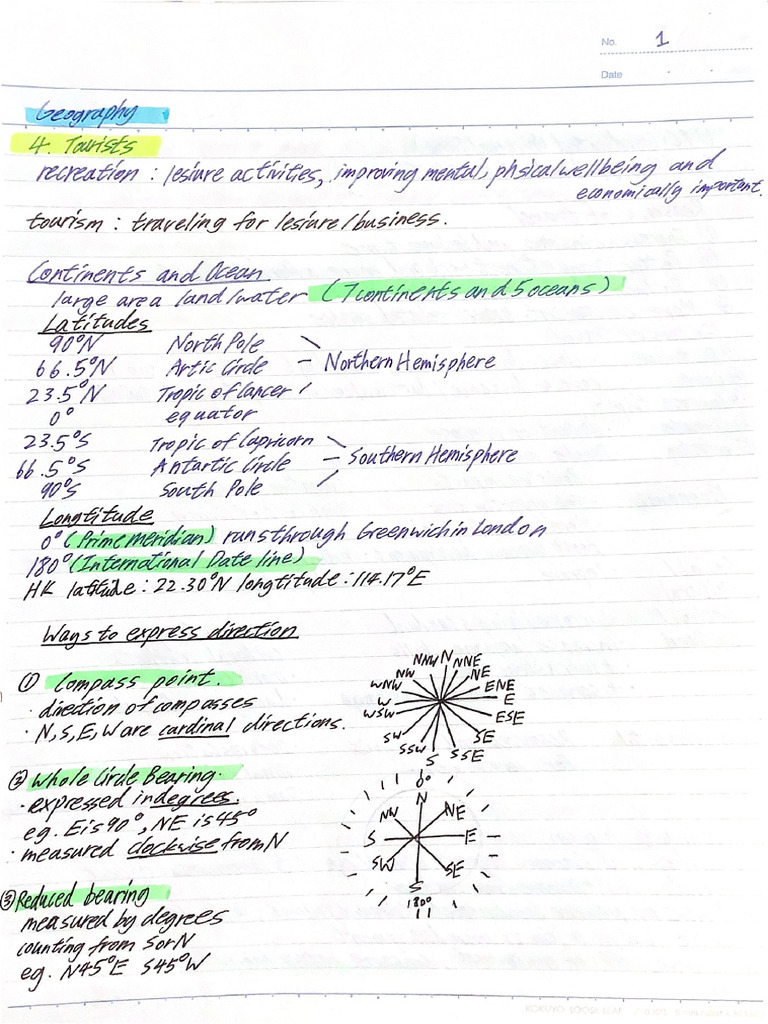 No. 1
Date
Geography
4. Tourists
recreation : lesiure activities, improving mental, phsical wellbeing and
economically important.
tourism : traveling for lesiure / business.
Continents and Ocean
large area land/water (7 continents and 5 oceans)
Latitudes
90°N North Pole
66.5°N Artic Circle - Northern Hemisphere
23.5°N Tropic of Cancer
0° equator
23.5°S Tropic of Capricorn
66.5°S Antartic Circle - Southern Hemisphere
90°S South Pole
Longtitude
0° (Prime meridian) runs through Greenwich in London
180° (International Date line)
HK latitude : 22.30°N longtitude : 114.17°E
Ways to express direction
① Compass point.
· direction of compasses
· N, S, E, W are cardinal directions.
NNW N NNE
NW NE
WNW ENE
W E
WSW ESE
SW SE
SSW S SSE
② Whole Circle Bearing.
· expressed in degrees.
eg. E is 90°, NE is 45°
· measured clockwise from N
0°
N
NW NE
S E
SW SE
S
180°
③ Reduced bearing
measured by degrees
counting from S or N
eg. N45°E S45°W